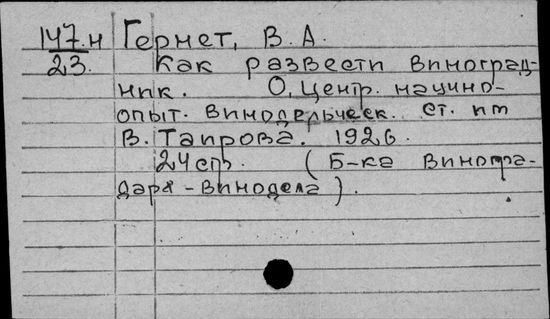 147.н Гернет, В. А.
23. Как развести виноград-
ник. О, Центр. научно-
опыт. винодельческ. ст. им
В. Таирова. 1926.
24 стр. (Б-ка виногра-
даря-винодела).